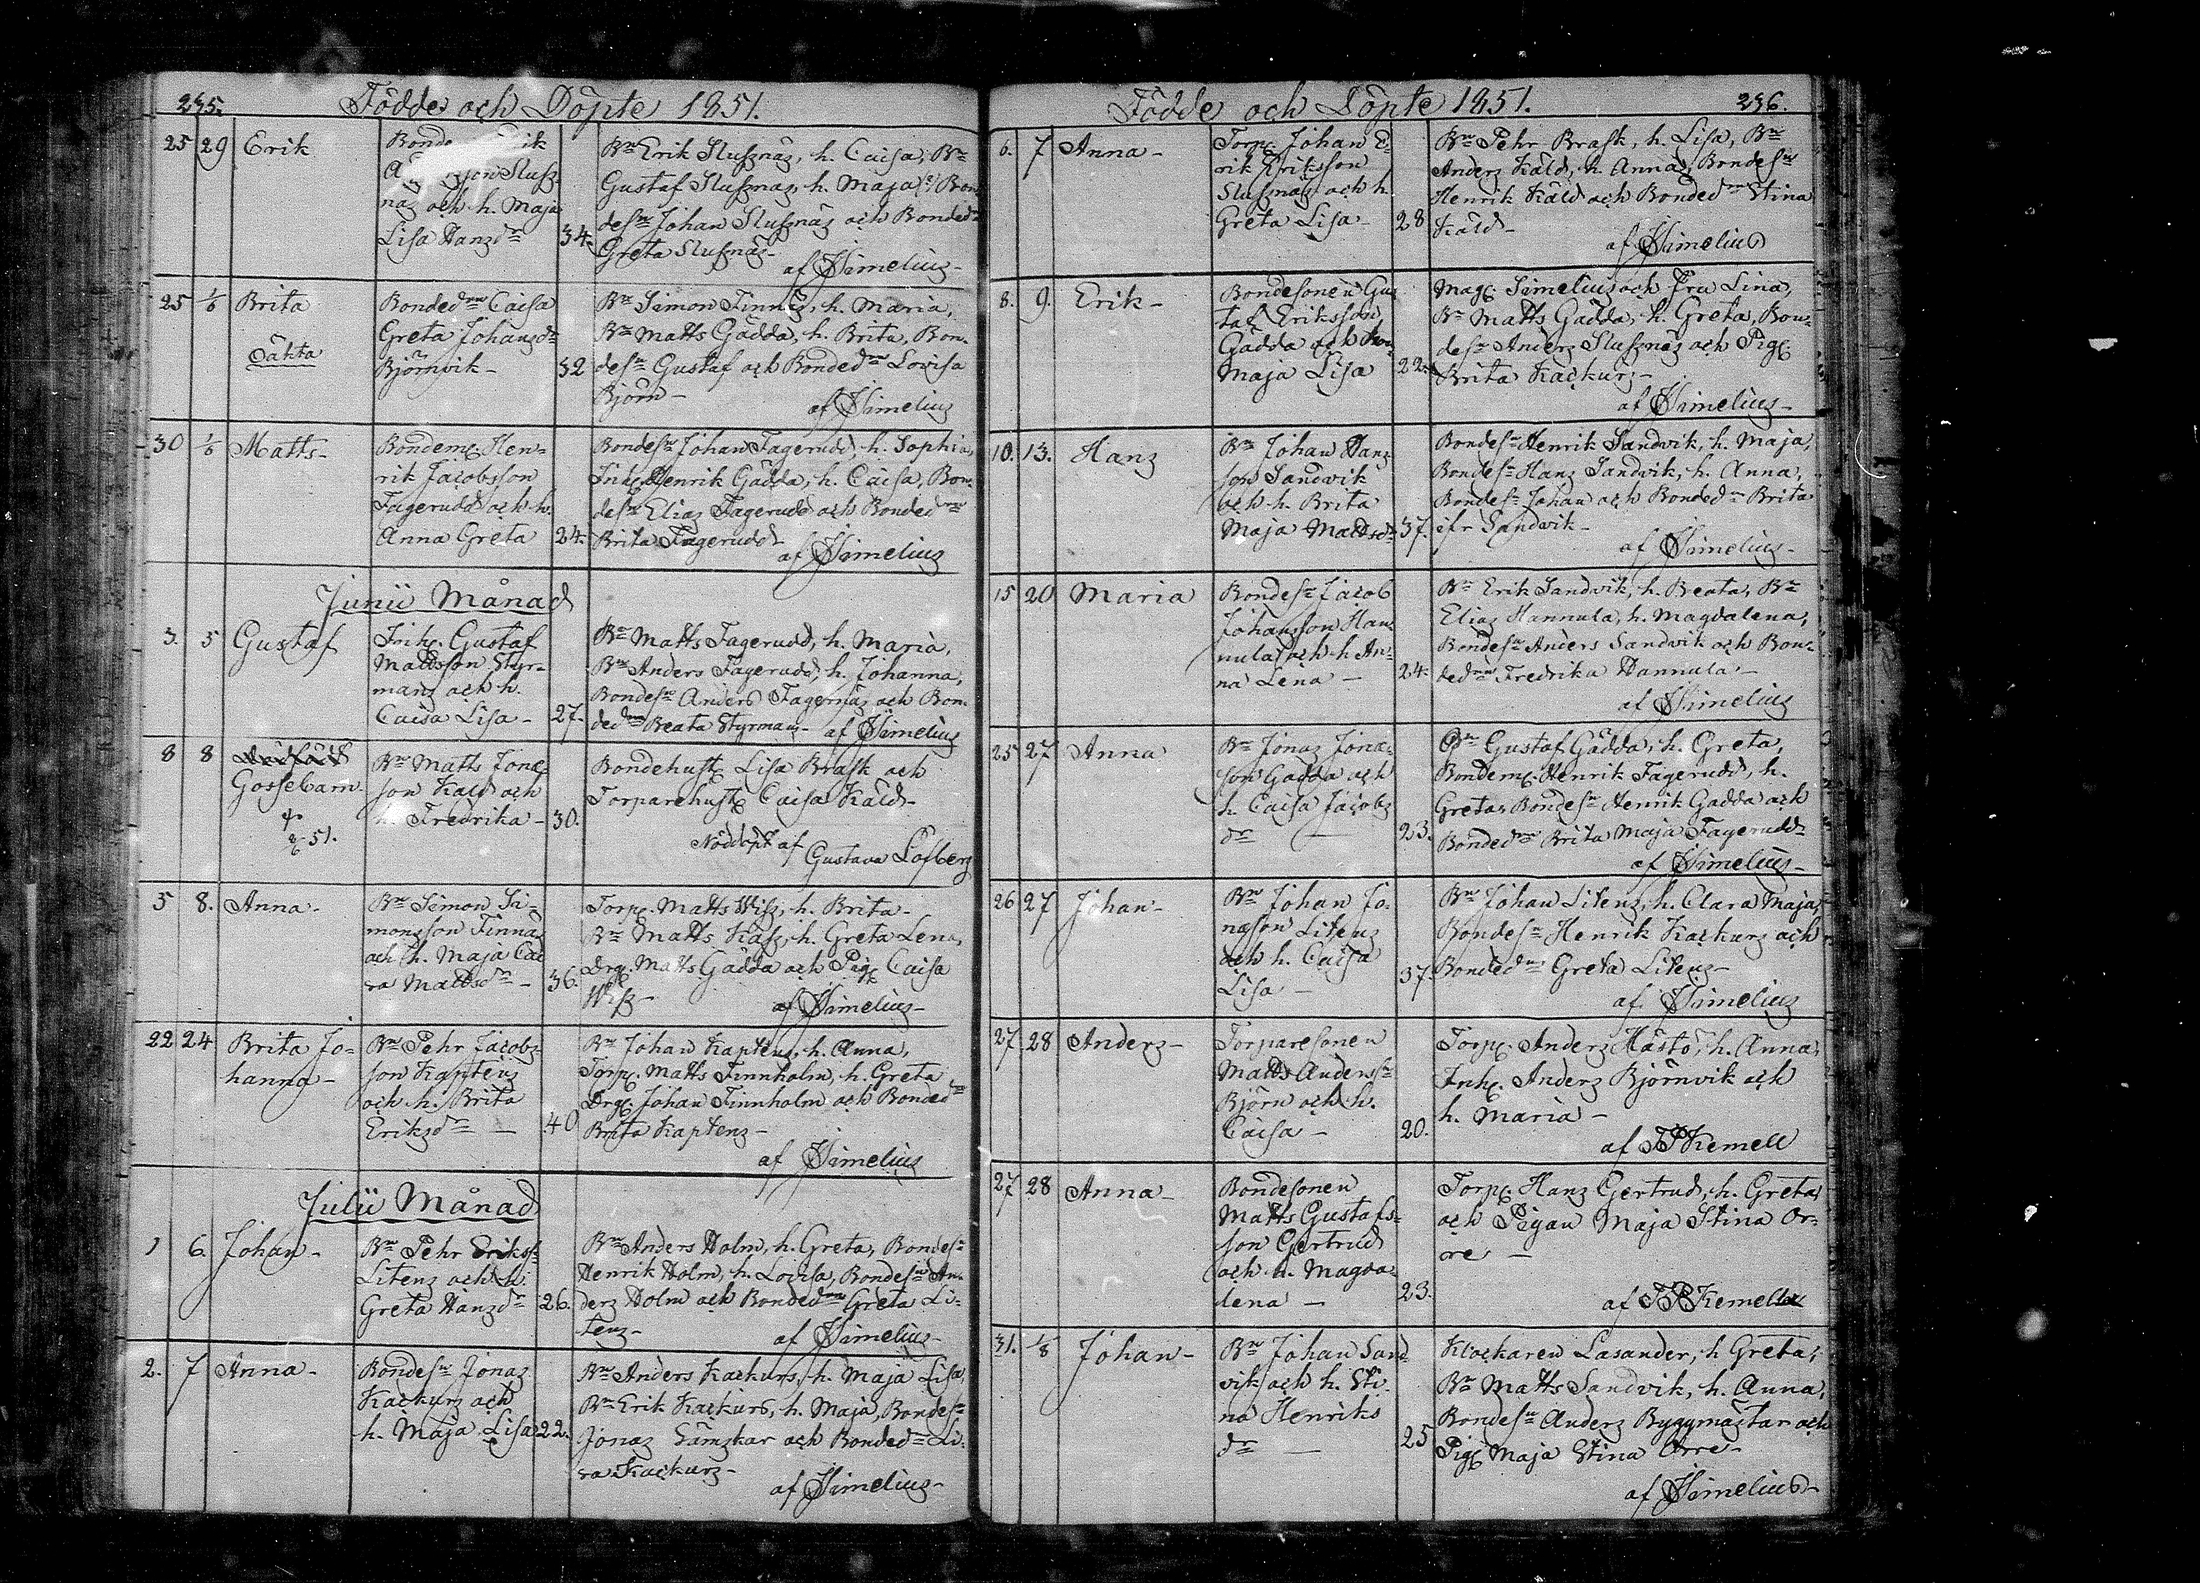 235.
Födde och Döpte 1851.
25 29 Erik
Bonde
näs och h. Maja
Lisa Hansdr 34.
Bn Erik Slussnäs, h. Caisa, Bn
Gustaf Slussnäs, h. Maja, Bon
desn Johan Slussnäs och Bondedr
Greta Slussnäs-
af JSimelius-
25 1/6 Brita
oäkta
Bondedrn Caisa
Greta Johansdr
Björnvik- 32
Bn Simon Finnäs, h. Maria,
Bn Matts Gädda, h. Brita, Bon-
desn Gustaf och Bondedrn Lovisa
Björn-
af JSimelius
30 1/6 Matts-
Bondem. Hen-
rik Jacobsson
Fagerudd och h.
Anna Greta 24.
Bondesn Johan Fagerudd, h. Sophia,
Inh. Henrik Gädda, h. Caisa, Bon-
desn Elias Fagerudd och Bondedrn
Brita Fagerudd-
af JSimelius
Junii Månad
3. 5 Gustaf
Inh. Gustaf
Mattsson Styr-
mans och h.
Caisa Lisa- 27.
Bn Matts Fagerudd, h. Maria,
Bn Anders Fagerudd, h. Johanna,
Bondesn Anders Fagernäs och Bon-
dedrn Beata Styrmans- af JSimelius
8 8
Gossebarn
51.
Bn Matts Jonæ-
son Käld och
h. Fredrika- 30.
Bondehust. Lisa Brask och
Torparehust. Caisa Käld-
Nöddöpt af Gustava Löfberg
5 8. Anna-
Bn Simon Si-
monsson Finnäs
och h. Maja Cai
sa Mattsdr- 36.
Torp. Matts Wiss, h. Brita-
Bn Matts Kass, h. Greta Lena,
Drg. Matts Gädda och Pig. Caisa
Wiss-
af JSimelius-
22 24 Brita Jo-
hanna-
Bn Pehr Jacobs
son Kaptens
och h. Brita
Eriksdr - 40
Bn Johan Kaptens, h. Anna,
Torp. Matts Finnholm, h. Greta
Drg. Johan Finnholm och Bondedrn
Brita Kaptens-
af JSimelius
Julii Månad
1 6. Johan-
Bn Pehr Erikss.
Litens och h.
Greta Hansdr 26.
Bn Anders Holm, h. Greta, Bondesn
Henrik Holm, h. Lovisa, Bondesn An-
ders Holm och Bondedrn Greta Li-
tens-
af JSimelius-
2. 7 Anna-
Bondesn Jonas
Kackurs och
h. Maja Lisa 22.
Bn Anders Kackurs, h. Maja Lisa,
Bn Erik Kackurs, h. Maja, Bondesn
Jonas Sämskar och Bondedr Li-
sa Kackurs-
af JSimelius-
Födde och Döpte 1851.
236.
6. 7 Anna-
Torp. Johan E-
rik Eriksson
Slussnäs och h.
Greta Lisa- 28
Bn Pehr Brask, h. Lisa, Bn
Anders Käld, h. Anna, Bondesn
Henrik Käld och Bondedrn Stina
Käld-
af JSimelius
8. 9. Erik-
Bondesonen Gus
taf Eriksson
Gädda och hu
Maja Lisa 22.
Mag. Simelius och Fru Lina,
Bn Matts Gädda, h. Greta, Bon-
desn Anders Slussnäs och Pig.
Brita Kackurs-
af JSimelius-
10. 13. Hans
Bn Johan Hans
son Sandvik
och h. Brita
Maja Mattsdr 37.
Bondesn Henrik Sandvik, h. Maja,
Bondesn Hans Sandvik, h. Anna,
Bondesn Johan och Bondedr Brita
ifr Sandvik-
af JSimelius-
15 20 Maria
Bondesn Jacob
Johansson Han-
nula och h. An-
na Lena - 24.
Bn Erik Sandvik, h. Beata, Bn
Elias Hannula, h. Magdalena,
Bondesn Anders Sandvik och Bon-
dedrn Fredrika Hannula-
af JSimelius
25 27 Anna
Bn Jonas Jonæ-
son Gädda och
h. Caisa Jacobs
dr - 23.
Bn Gustaf Gädda, h. Greta,
Bondem. Henrik Fagerudd, h.
Greta, Bondesn Henrik Gädda och
Bondedrn Brita Maja Fagerudd-
af JSimelius-
26 27 Johan-
Bn Johan Jo-
nasson Litens
och h. Caisa
Lisa - 37.
Bn Johan Litens, h. Clara Maja,
Bondesn Henrik Kackurs och
Bondedrn Greta Litens-
af JSimelius
27 28 Anders-
Torparesonen
Matts Anderss
Björn och h.
Caisa - 20.
Torp. Anders Hästö, h. Anna,
Inh. Anders Björnvik och
h. Maria-
af Kemell
27 28 Anna-
Bondesonen
Matts Gustafs-
son Gertruds
och h. Magda-
lena - 23.
Torp. Hans Gertruds, h. Greta,
och Pigan Maja Stina Or-
re -
af Kemell
31. 1/8 Johan-
Bn Johan Sand-
vik och h. Sti-
na Henriks
dr - 25
Klockaren Lasander, h. Greta,
Bn Matts Sandvik, h. Anna,
Bondesn Anders Byggmästar och
Pig. Maja Stina Orre-
af JSimelius-